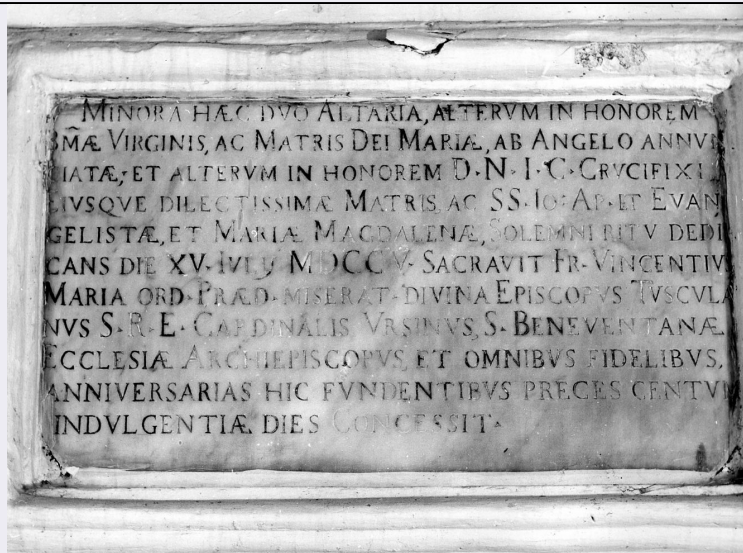 MINORA HÆC DVO ALTARIA, ALTERVM IN HONOREM
BM̃Æ VIRGINIS, AC MATRIS DEI MARIÆ, AB ANGELO ANNVN
IATÆ, ET ALTERVM IN HONOREM D·N·I·C·CRVCIFIXI
EIVSQVE DILECTISSIMÆ MATRIS, AC SS·IO: AP·ET EVAN
GELISTÆ, ET MARIÆ MAGDALENÆ, SOLEMNI RITV DEDI
CANS DIE XV·IVLY MDCCV·SACRAVIT FR·VINCENTIVS
MARIA ORD·PRÆD·MISERAT·DIVINA EPISCOPVS TVSCVLA
NVS S·R·E·CARDINALIS VRSINVS, S·BENEVENTANÆ
ECCLESIÆ ARCHIEPISCOPVS, ET OMNIBVS FIDELIBVS,
ANNIVERSARIAS HIC FVNDENTIBVS PRECES CENTVM
INDVLGENTIÆ DIES CONCESSIT·